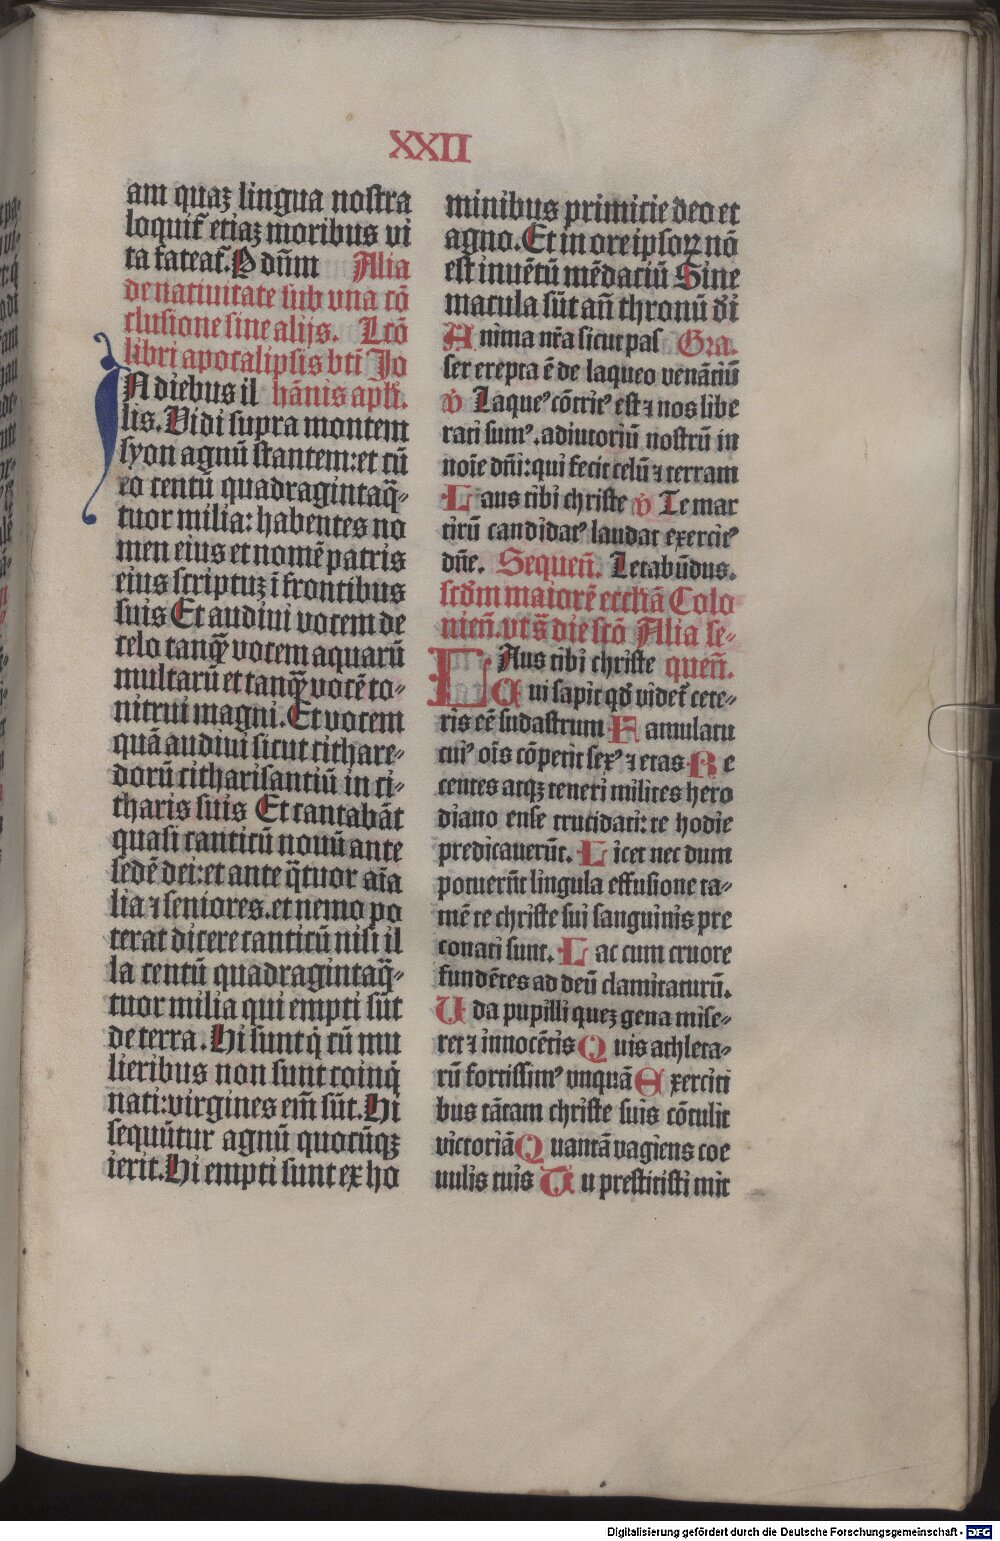 XXII
am quaꝫ lingua nostra
loquit᷑ etiaꝫ moribus vi
ta fateat᷑. P dn̄m Alia
de natiuitate sub vna cō
clusione sine alijs. Lcō
libri apocalipsis bt̄i Jo
IN diebus il hānis apl̄i.
lis. Vidi supra montem
syon agnū stantem: et cū
eo centū quadragintaq̄-
tuor milia: habentes no
men eius et nomē patris
eius scriptuꝫ ī frontibus
suis Et audiui vocem de
celo tanq̄ vocem aquarū
multarū et tanq̄ vocē to-
nitrui magni. Et vocem
quā audiui sicut cithare-
dorū citharisantiū in ci-
tharis suis Et cantabāt
quasi canticū nouū ante
sedē dei: et ante q̄tuor aīa
lia ⁊ seniores. et nemo po
terat dicere canticū nisi il
la centū quadragintaq̄-
tuor milia qui empti sūt
de terra. Hi sunt q̇ cū mu
lieribus non sunt coinq̇
nati: virgines em̄ sūt. Hi
sequūtur agnū quocūqꝫ
ierit. Hi empti sunt ex ho
minibus primicie deo et
agno. Et in ore ipsoꝝ nō
est inuētū mēdaciū Sine
macula sūt an̄ thronū d̄i
Anima nr̄a sicut pas Gra.
ser erepta ē de laqueo venātiū
v̄ Laque⁹ cōtrit⁹ est ⁊ nos libe
rati sum⁹. adiutoriū nostrū in
noīe dn̄i: qui fecit celū ⁊ terram
Laus tibi christe v̄ Te mar
tirū candidat⁹ laudat exercit⁹
dn̄e. Sequen̄. Letabūdus.
scd̄m maiorē eccliā Colo
nien̄. vt s̄ die sctō Alia se-
LAus tibi christe quen̄.
Cui sapit qd̄ videt᷑ cete-
ris eē sudastrum Famulatu
cui⁹ oīs cōpetit sex⁹ ⁊ etas Re
centes atqꝫ teneri milites hero
diano ense trucidati: te hodie
predicauerūt. Licet nec dum
potuerūt lingula effusione ta-
mē te christe sui sanguinis pre
conati sunt. Lac cum cruore
fundētes ad deū clamitaturū.
Uda pupilli queꝫ gena mise-
ret ⁊ innocētis Quis athleta-
rū fortissim⁹ vnquā Exerciti
bus tātam christe suis cōtulit
victoriā Quantā vagiens coe
uulis tuis Tu prestitisti mit
Digitalisierung gefördert durch die Deutsche Forschungsgemeinschaft - DFG